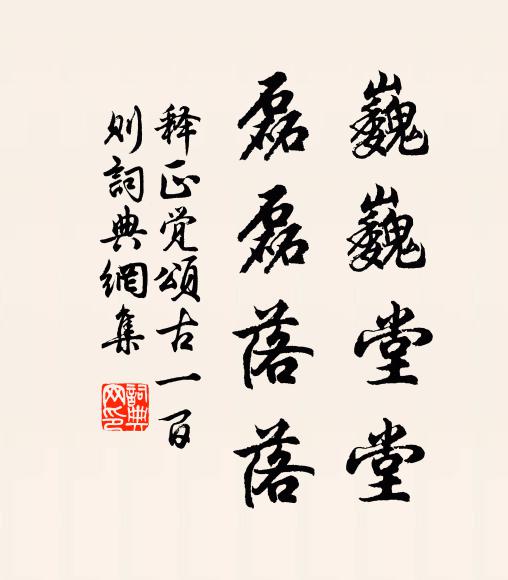 巍巍堂堂
磊磊落落
释正觉頌古一百
则詞典網集
詞典网印